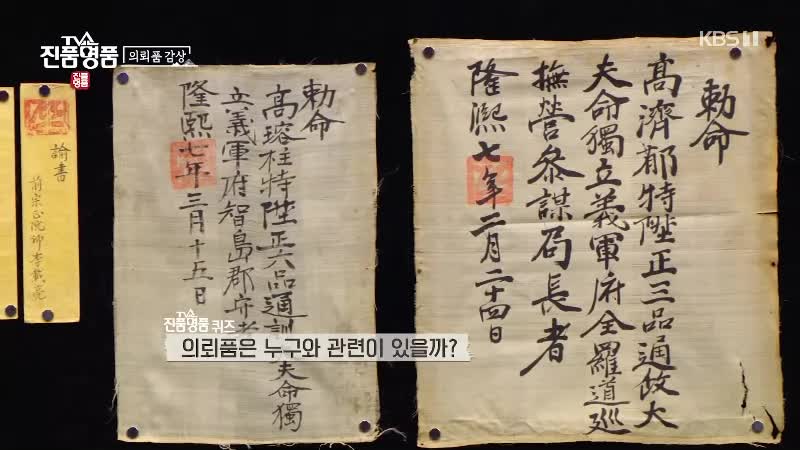 TV쇼
진품명품
의뢰품 감상
진품
명품
KBS 1
勅命
高濟郁特陞正三品通政大
夫命獨立義軍府全羅道巡
撫營參謀局長者
隆熙七年二月二十四日
勅命
高瑢柱特陞正六品通訓夫命獨
立義軍府智島郡守
隆熙七年三月十五日
諭書
前宗正院卿李載
TV쇼
진품명품 퀴즈
의뢰품은 누구와 관련이 있을까?